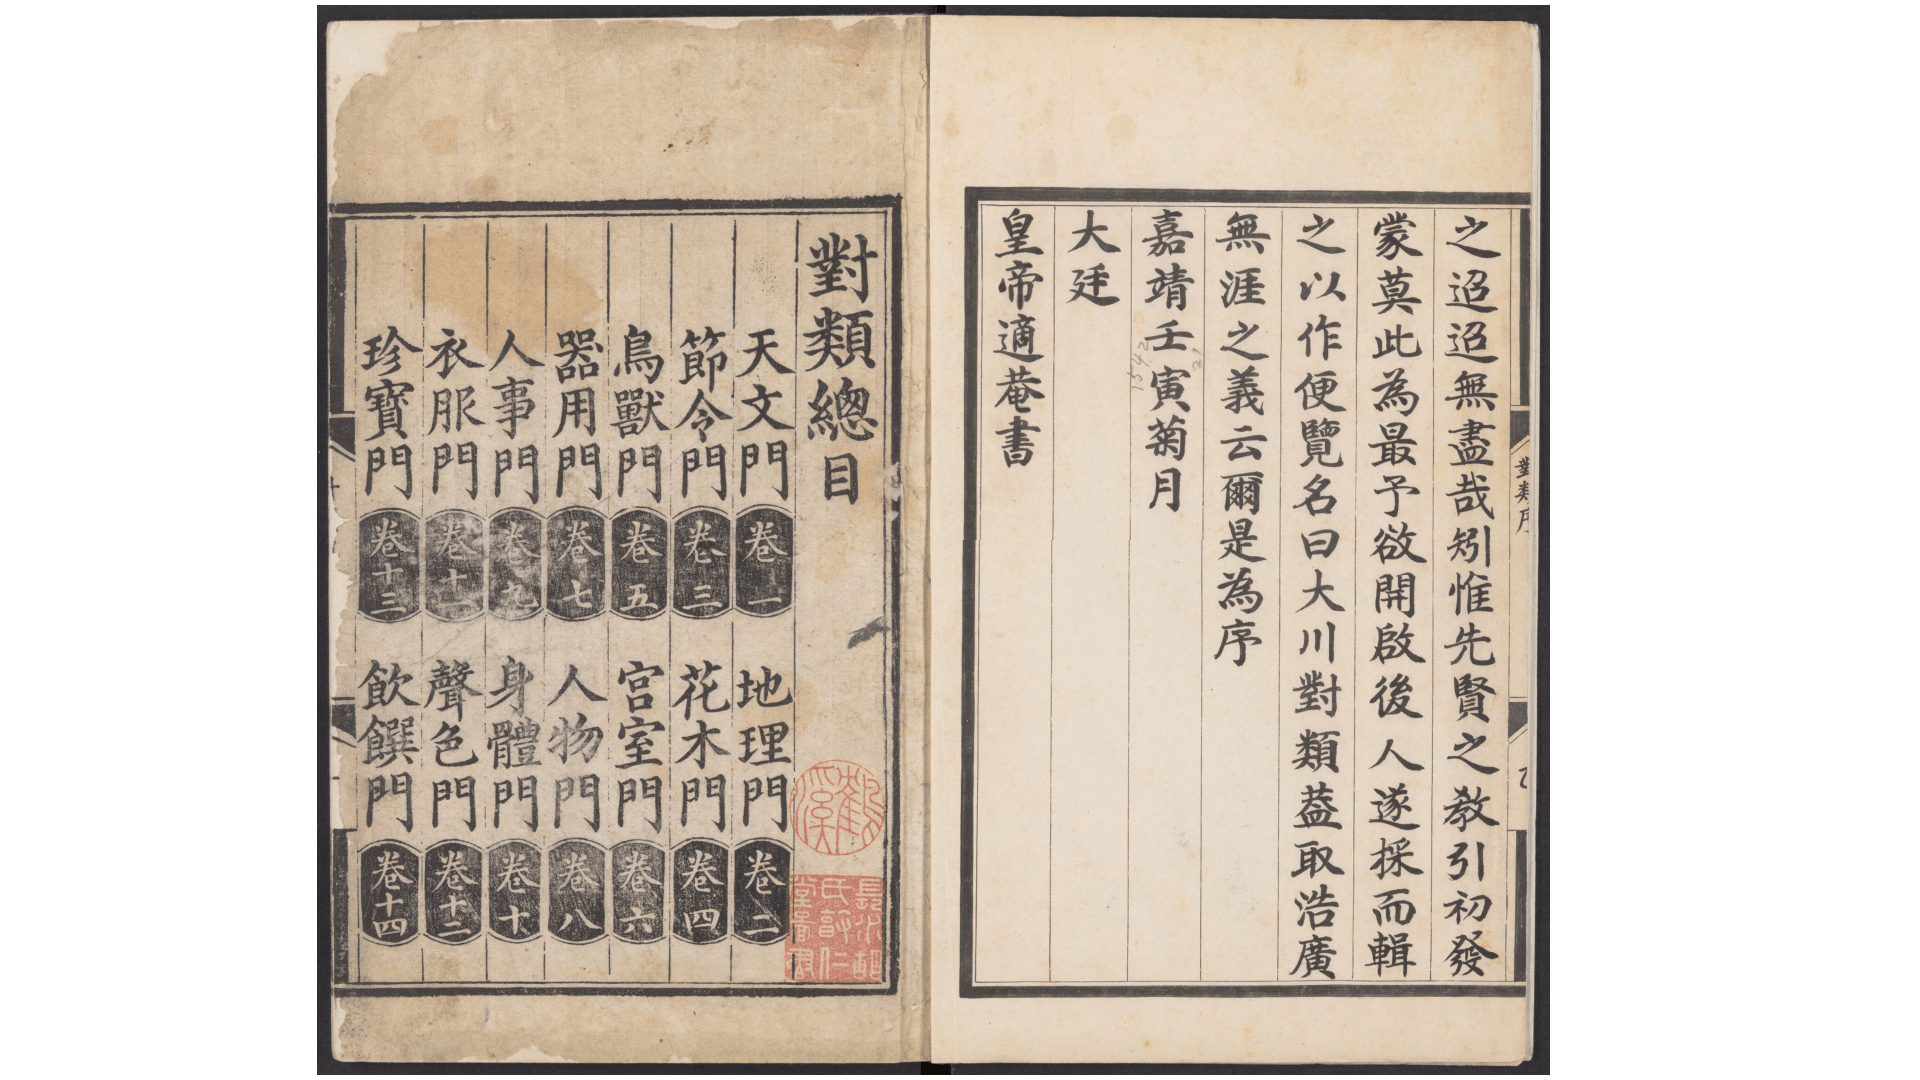 之迢迢無盡哉矧惟先賢之教引初發
蒙莫此為最予欲開啟後人遂採而輯
之以作便覽名曰大川對類葢取浩廣
無涯之義云爾是為序
嘉靖壬寅菊月
大廷
皇帝適菴書
對類序
1542
對類總目
天文門 卷一 地理門 卷二
節令門 卷三 花木門 卷四
鳥獸門 卷五 宮室門 卷六
器用門 卷七 人物門 卷八
人事門 卷九 身體門 卷十
衣服門 卷十一 聲色門 卷十二
珍寶門 卷十三 飲饌門 卷十四